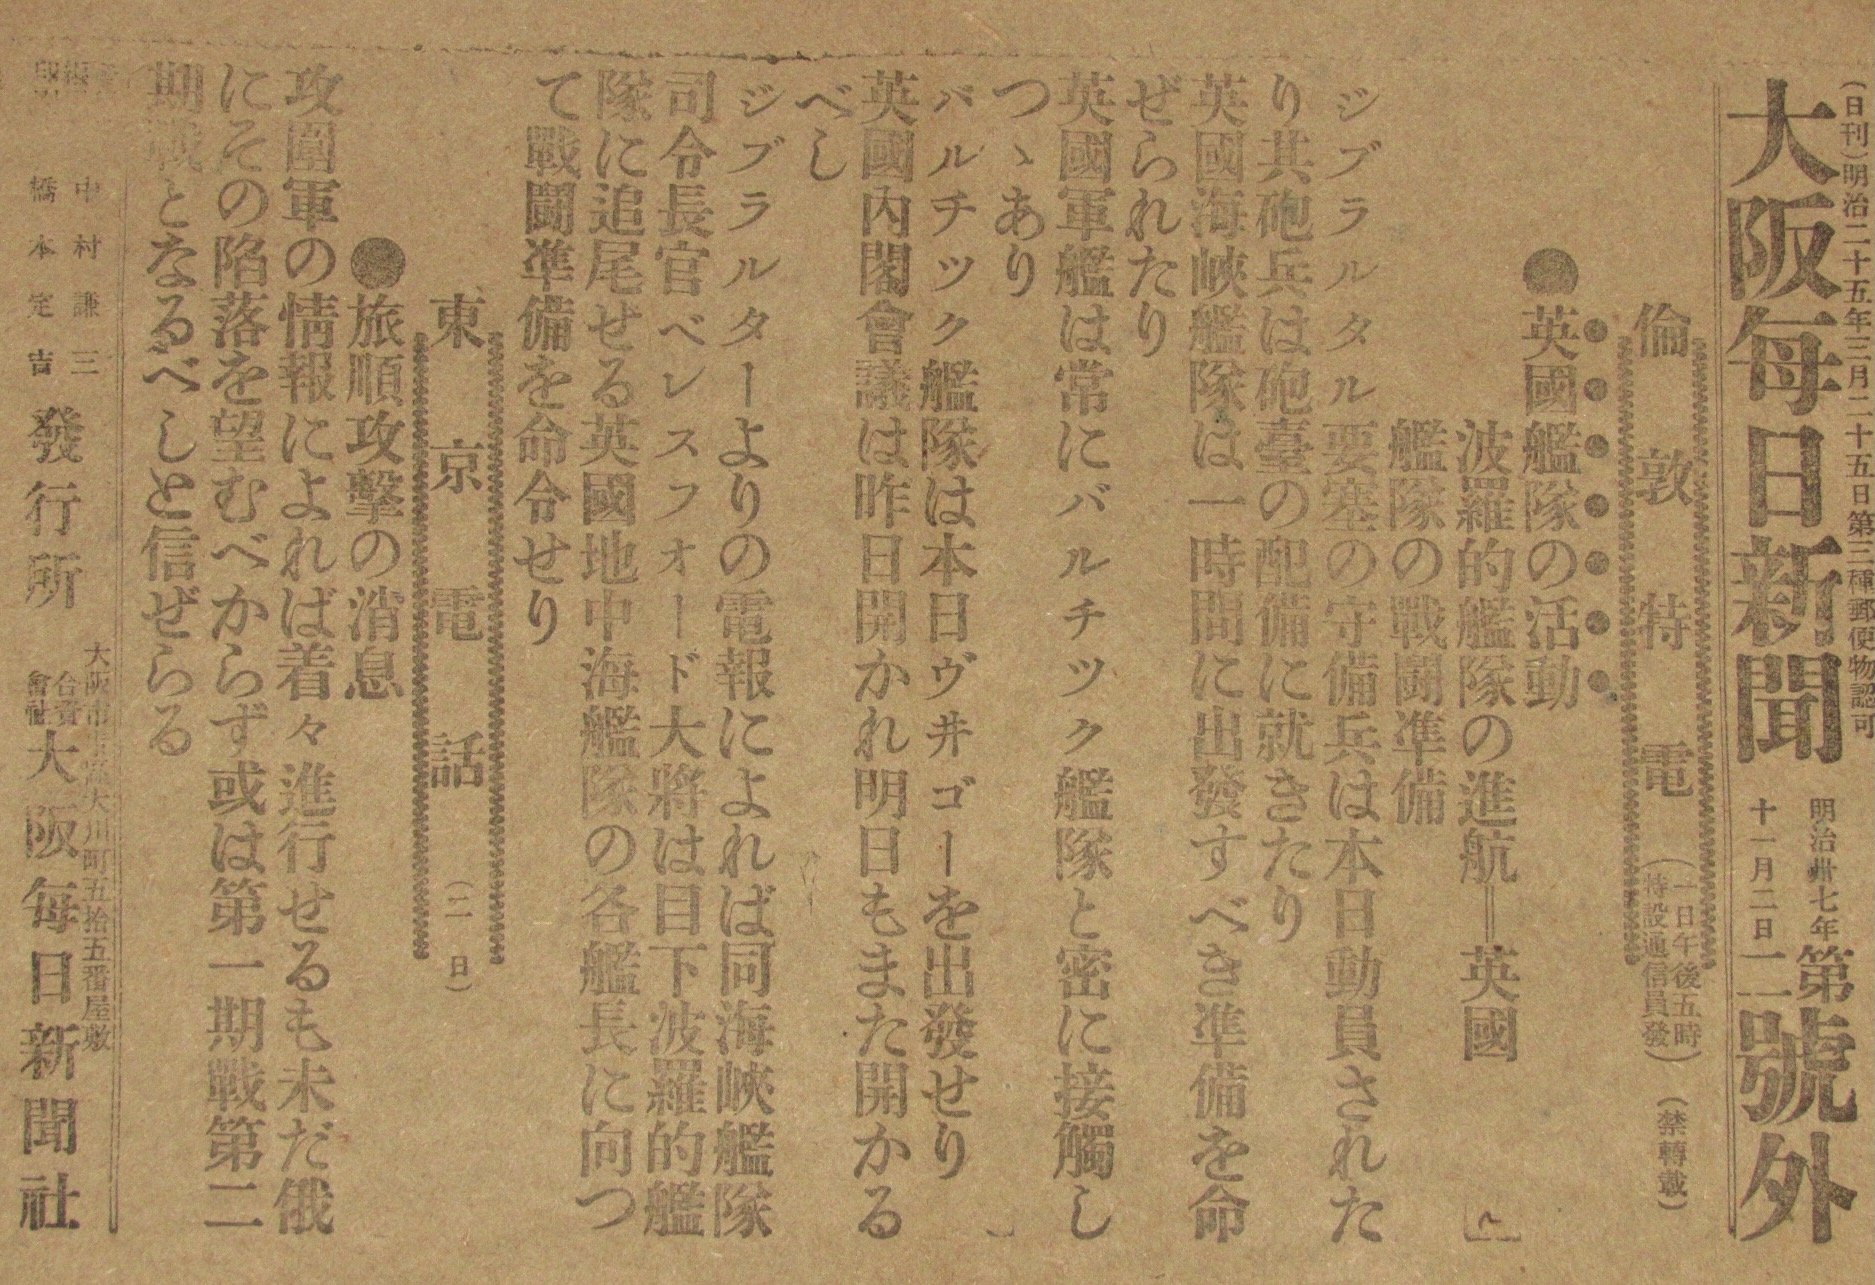 (日刊)明治二十五年三月二十五日第三種郵便物認可
大阪毎日新聞
明治卅七年
十一月二日
第二號外
倫敦特電
(一日午後五時
特設通信員發)
(禁轉載)
●英國艦隊の活動
波羅的艦隊の進航=英國
艦隊の戰鬪準備
ジブラルタル要塞の守備兵は本日動員された
り共砲兵は砲臺の配備に就きたり
英國海峽艦隊は一時間に出發すべき準備を命
ぜられたり
英國軍艦は常にバルチツク艦隊と密に接觸し
つゝあり
バルチツク艦隊は本日ヴ井ゴーを出發せり
英國內閣會議は昨日開かれ明日もまた開かる
べし
ジブラルターよりの電報によれば同海峽艦隊
司令長官ベレスフオード大將は目下波羅的艦
隊に追尾せる英國地中海艦隊の各艦長に向つ
て戰鬪準備を命令せり
東京電話
(二日)
●旅順攻擊の消息
攻圍軍の情報によれば着々進行せるも未だ俄
にその陷落を望むべからず或は第一期戰第二
期戰となるべしと信ぜらる
中村謙三
橋本定吉
發行所
大阪市 大川町五拾五番屋敷
合資
會社
大阪毎日新聞社